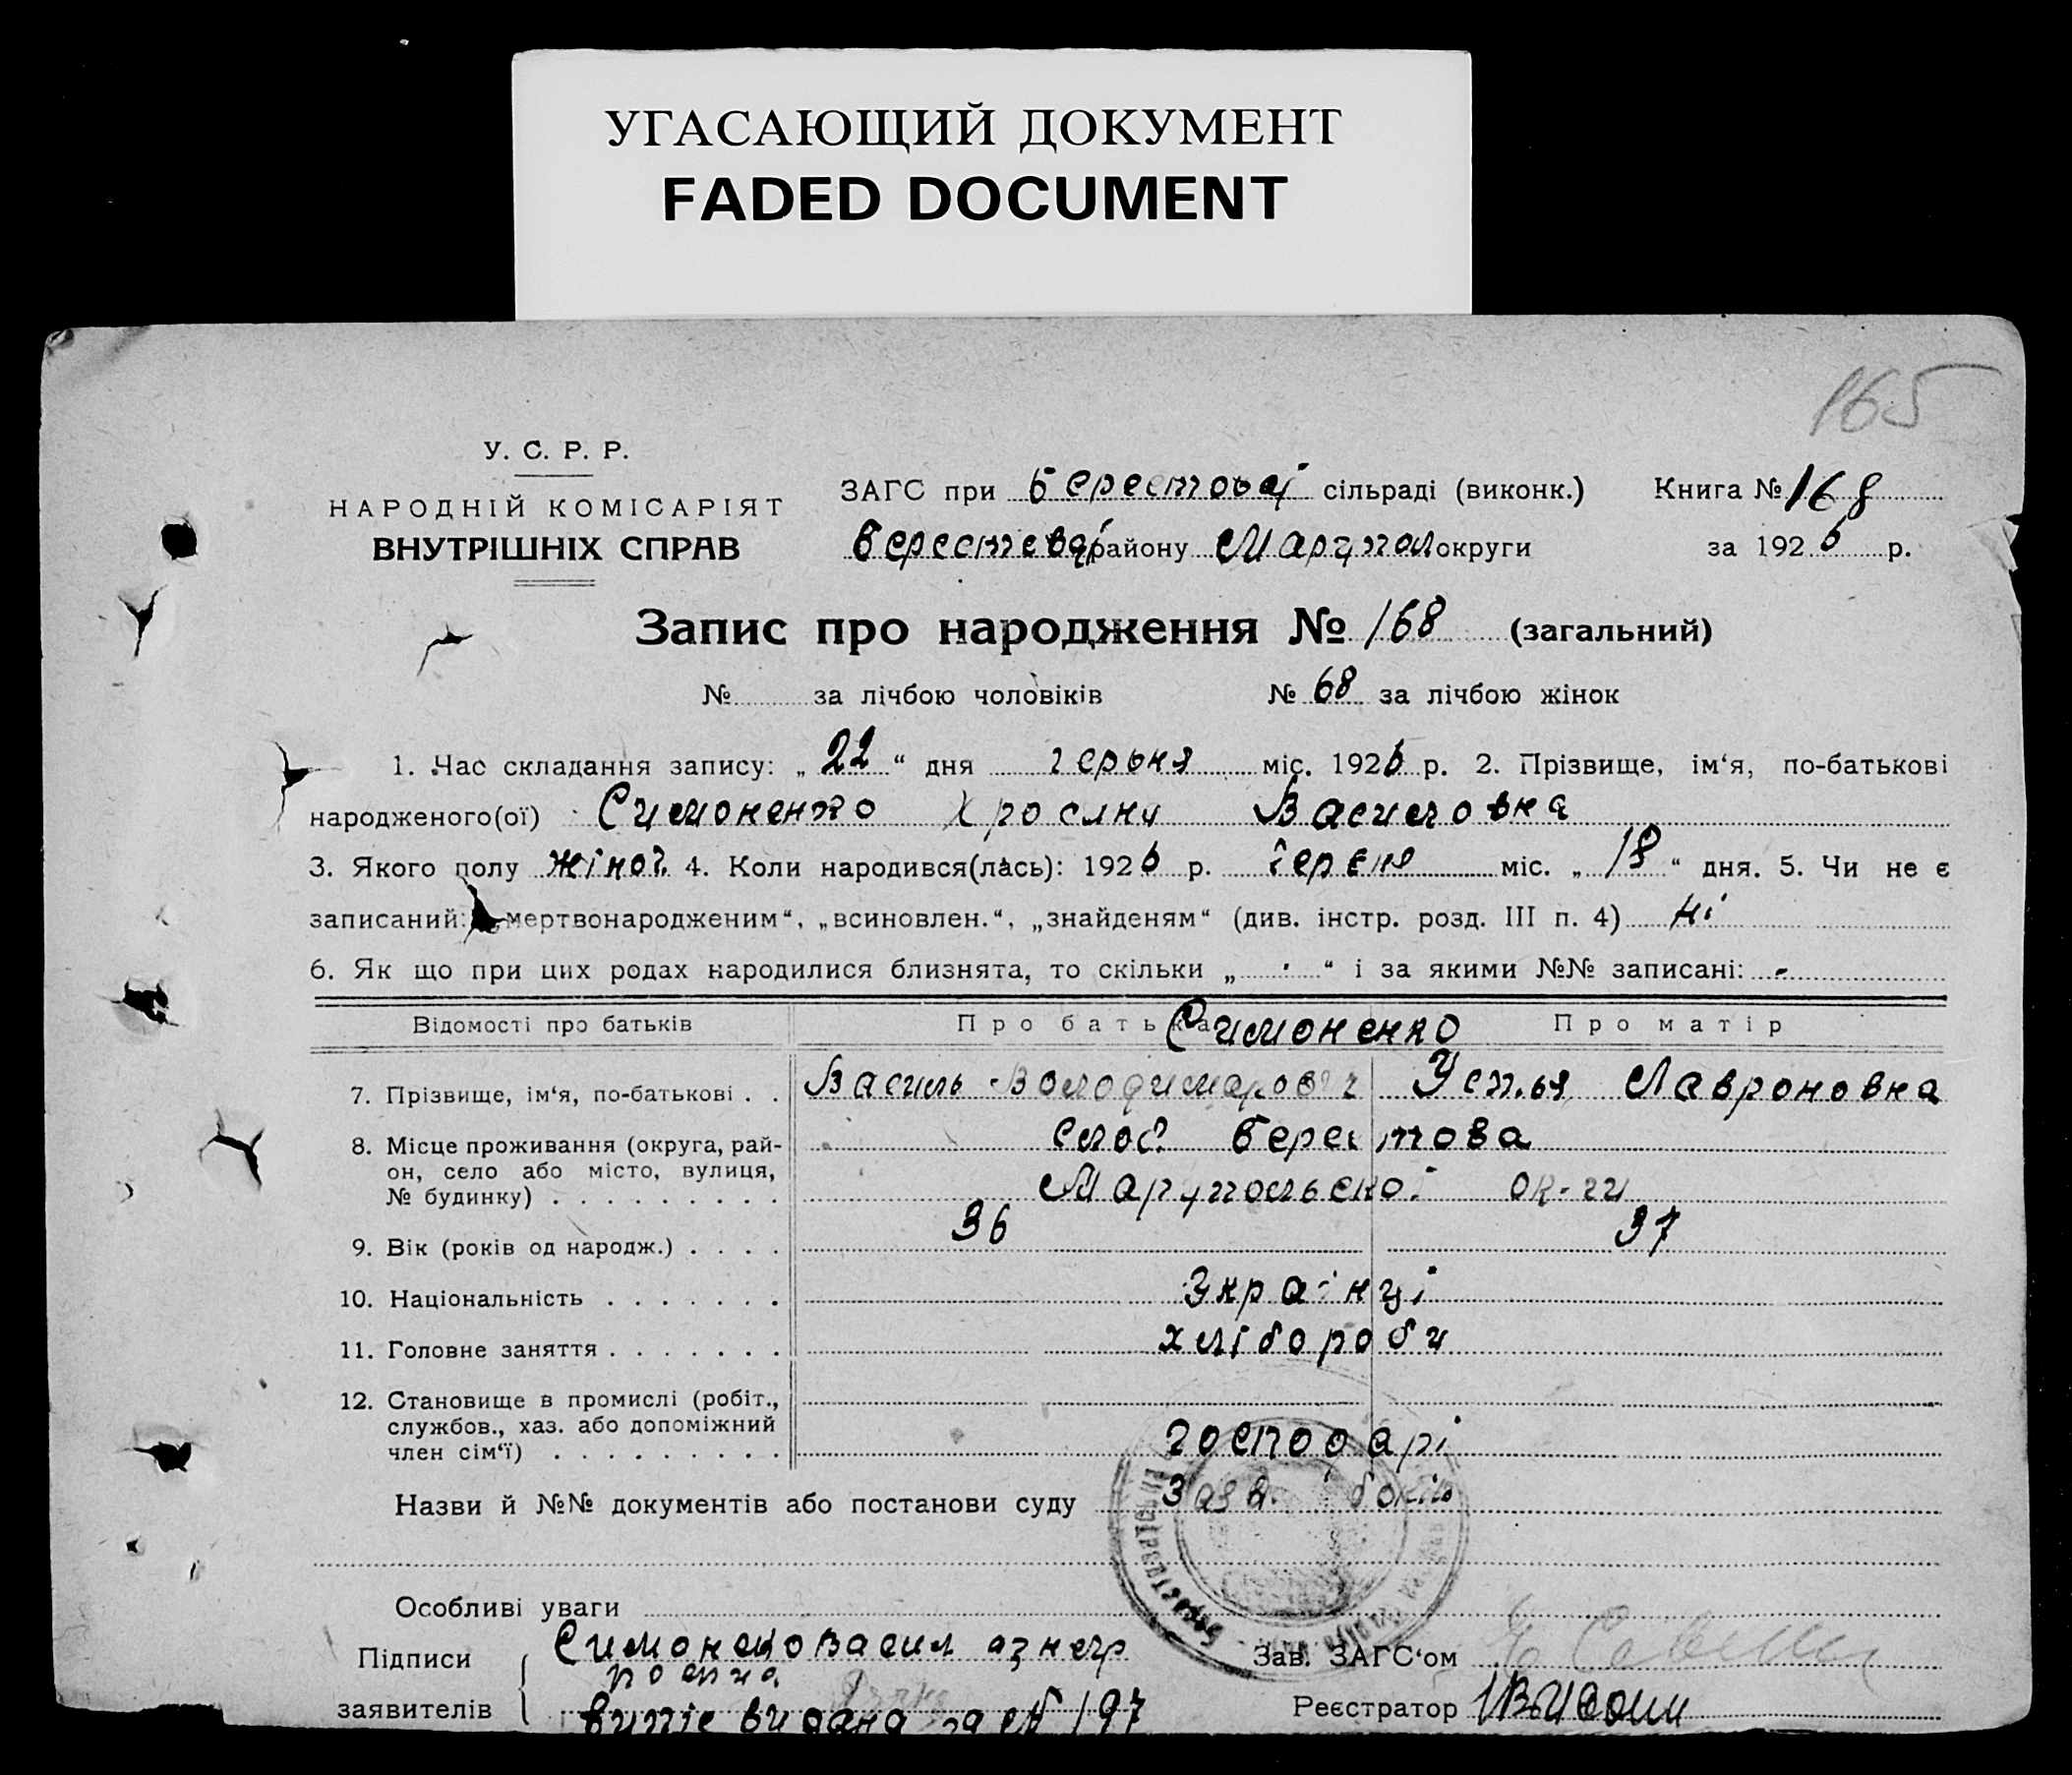 УГАСАЮЩИЙ ДОКУМЕНТ
FADED DOCUMENT
165
У. С. Р. Р.
НАРОДНІЙ КОМІСАРІЯТ
ВНУТРІШНІХ СПРАВ
ЗАГС при Берестовій сільраді (виконк.)
Книга № 168
Берестовай району Маріупол округи
за 1926 р.
Запис про народження № 168 (загальний)
№ за лічбою чоловіків № 68 за лічбою жінок
1. Час складання запису: „22“ дня черьня міс. 1926 р. 2. Прізвище, ім‘я, по-батькові
народженого(ої) Симоненко Хросини Василовна
3. Якого полу жіноч. 4. Коли народився(лась): 1926 р. черєня міс. „18“ дня. 5. Чи не є
записаний: „мертвонародженим“, „всиновлен.“, „знайденям“ (див. інстр. розд. III п. 4) ні
6. Як що при цих родах народилися близнята, то скільки „ - “ і за якими №№ записані: -
Відомості про батьків Про батька Про матір
Симоненко
7. Прізвище, ім‘я, по-батькові . . Василь Володимирович Устья Лавроновна
8. Місце проживання (округа, район, село або місто, вулиця, № будинку) . . . . . . . . . слоб. Берестова
Маріупольської ок-ги
9. Вік (років од народж.) . . . . 36 37
10. Національність . . . . . . . Українці
11. Головне заняття . . . . . . . хлібороби
12. Становище в промислі (робіт., службов., хаз. або допоміжний член сім‘ї) . . . . . . . . . господарі
Назви й №№ документів або постанови суду
Особливі уваги
Підписи заявителів Симоненко Васил
Зав. ЗАГС‘ом
випіс видана за № 197
Реєстратор